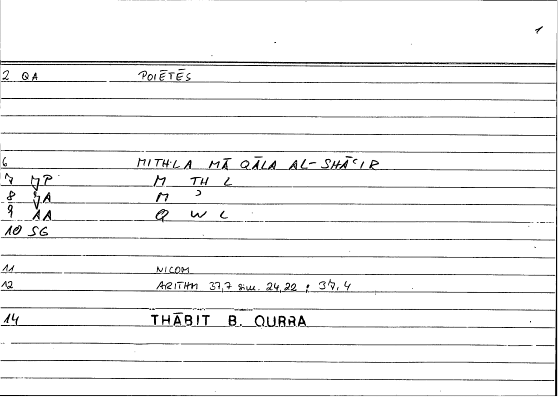 1
2 QA POIĒTĒS
6 MITHLA MĀ QĀLA AL-SHĀʿIR
7 M TH L
8 M ʾ
9 AA Q W L
10 SG
11 NICOM
12 ARITHM 37,7 sim. 24,22 ; 37,4
14 THĀBIT B. QURRA